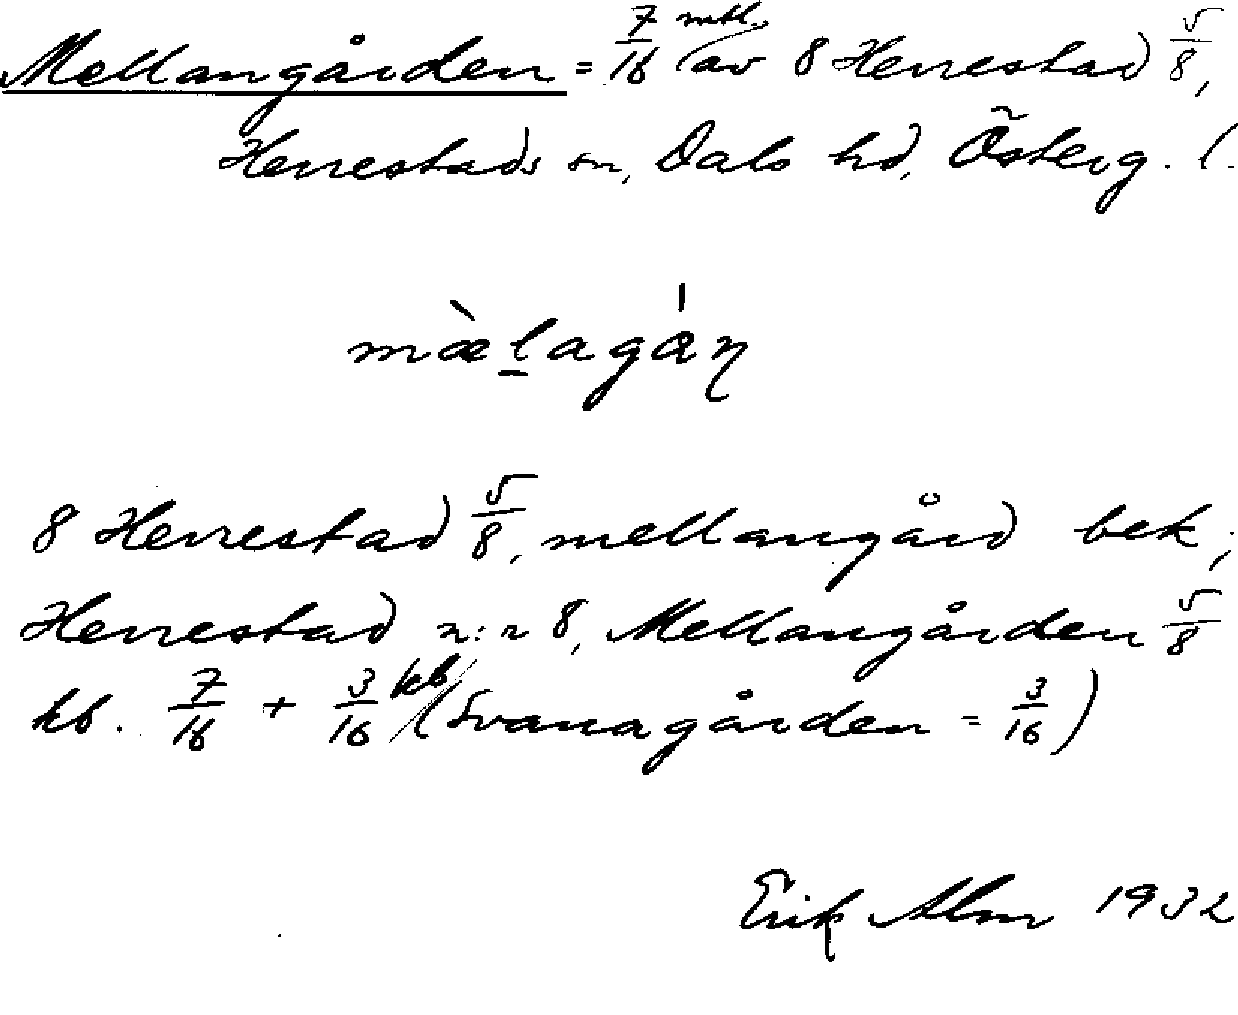 Mellangården = 7/16 mtl. av 8 Herrestad 5/8,
Herrestads sn, Dals hd, Österg. l.
mæ̀lagán
8 Herrestad 5/8, mellangård bek;
Herrestad n:r 8, Mellangården 5/8
kb. 7/16 + 3/16 kb (Svanagården = 3/16)
Erik Alm 1932